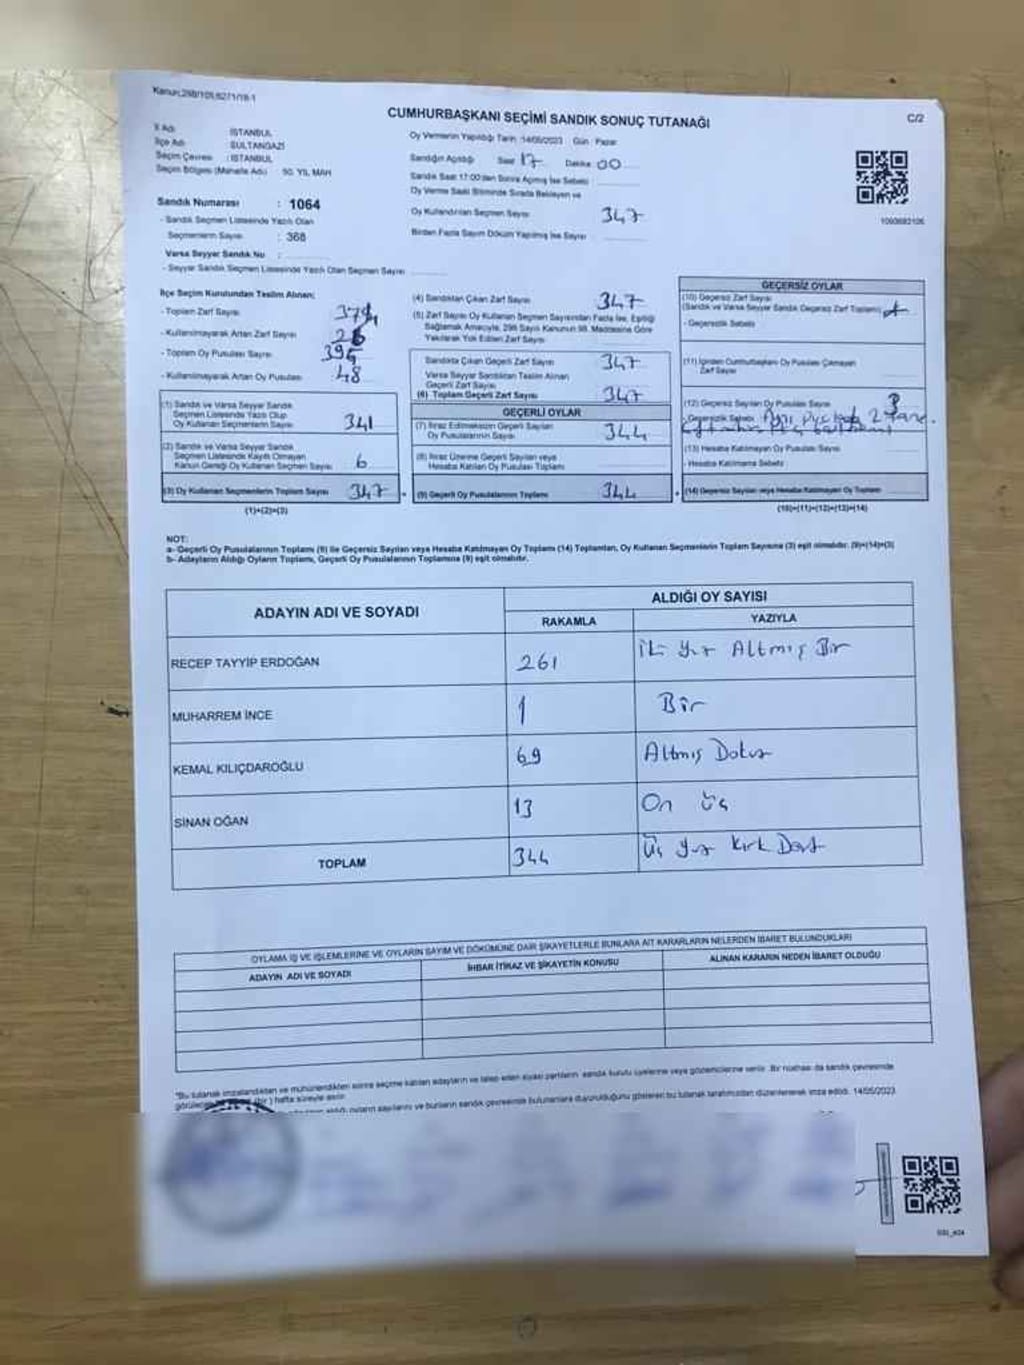 Kanun:298/105,6271/18-1
CUMHURBAŞKANI SEÇİMİ SANDIK SONUÇ TUTANAĞI
C/2
İl Adı : İSTANBUL
İlçe Adı : SULTANGAZİ
Seçim Çevresi : İSTANBUL
Seçim Bölgesi (Mahalle Adı) 50. YIL MAH
Sandık Numarası : 1064
- Sandık Seçmen Listesinde Yazılı Olan
Seçmenlerin Sayısı : 368
Varsa Seyyar Sandık No :
- Seyyar Sandık Seçmen Listesinde Yazılı Olan Seçmen Sayısı
Oy Vermenin Yapıldığı Tarih :14/05/2023 Gün : Pazar
Sandığın Açıldığı Saat 17 Dakika 00
Sandık Saat 17:00'den Sonra Açılmış İse Sebebi
Oy Verme Saati Bitiminde Sırada Bekleyen ve
Oy Kullandırılan Seçmen Sayısı 347
Birden Fazla Sayım Döküm Yapılmış İse Sayısı
İlçe Seçim Kurulundan Teslim Alınan;
- Toplam Zarf Sayısı
- Kullanılmayarak Artan Zarf Sayısı
- Toplam Oy Pusulası Sayısı 395
- Kullanılmayarak Artan Oy Pusulası 48
(1) Sandık ve Varsa Seyyar Sandık
Seçmen Listesinde Yazılı Olup
Oy Kullanan Seçmenlerin Sayısı 341
(2) Sandık ve Varsa Seyyar Sandık
Seçmen Listesinde Kayıtlı Olmayan
Kanun Gereği Oy Kullanan Seçmen Sayısı 6
(3) Oy Kullanan Seçmenlerin Toplam Sayısı 347
(1)+(2)=(3)
(4) Sandıktan Çıkan Zarf Sayısı 347
(5) Zarf Sayısı Oy Kullanan Seçmen Sayısından Fazla İse, Eşitliği
Sağlamak Amacıyla, 298 Sayılı Kanunun 98. Maddesine Göre
Yakılarak Yok Edilen Zarf Sayısı
Sandıkta Çıkan Geçerli Zarf Sayısı 347
Varsa Seyyar Sandıktan Teslim Alınan
Geçerli Zarf Sayısı
(6) Toplam Geçerli Zarf Sayısı 347
GEÇERLİ OYLAR
(7) İtiraz Edilmeksizin Geçerli Sayılan
Oy Pusulalarının Sayısı 344
(8) İtiraz Üzerine Geçerli Sayılan veya
Hesaba Katılan Oy Pusulası Toplamı
(9) Geçerli Oy Pusulalarının Toplamı 344
GEÇERSİZ OYLAR
(10) Geçersiz Zarf Sayısı
(Sandık ve Varsa Seyyar Sandık Geçersiz Zarf Toplamı)
- Geçersizlik Sebebi
(11) İçinden Cumhurbaşkanı Oy Pusulası Çıkmayan
Zarf Sayısı
(12) Geçersiz Sayılan Oy Pusulası Sayısı 3
- Geçersizlik Sebebi
(13) Hesaba Katılmayan Oy Pusulası Sayısı
- Hesaba Katılmama Sebebi
(14) Geçersiz Sayılan veya Hesaba Katılmayan Oy Toplamı
(10)+(11)+(12)+(13)=(14)
NOT:
a- Geçerli Oy Pusulalarının Toplamı (9) ile Geçersiz Sayılan veya Hesaba Katılmayan Oy Toplamı (14) Toplamları, Oy Kullanan Seçmenlerin Toplam Sayısına (3) eşit olmalıdır. (9)+(14)=(3)
b- Adayların Aldığı Oyların Toplamı, Geçerli Oy Pusulalarının Toplamına (9) eşit olmalıdır.
ADAYIN ADI VE SOYADI
ALDIĞI OY SAYISI
RAKAMLA YAZIYLA
RECEP TAYYİP ERDOĞAN 261 İki Yüz Altmış Bir
MUHARREM İNCE 1 Bir
KEMAL KILIÇDAROĞLU 69 Altmış Dokuz
SİNAN OĞAN 13 On Üç
TOPLAM 344 Üç Yüz Kırk Dört
OYLAMA İŞ VE İŞLEMLERİNE VE OYLARIN SAYIM VE DÖKÜMÜNE DAİR ŞİKAYETLERLE BUNLARA AİT KARARLARIN NELERDEN İBARET BULUNDUKLARI
ADAYIN ADI VE SOYADI
İHBAR İTİRAZ VE ŞİKAYETİN KONUSU
ALINAN KARARIN NEDEN İBARET OLDUĞU
"Bu tutanak imzalandıktan ve mühürlendikten sonra seçime katılan adayların ve talep eden siyasi partilerin sandık kurulu üyelerine veya gözlemcilerine verilir. Bir nüshası da sandık çevresinde
(bir) hafta süreyle asılır.
aldığı oyların sayılarını ve bunların sandık çevresinde bulunanlara duyurulduğunu gösteren bu tutanak tarafımızdan düzenlenerek imza edildi. 14/05/2023